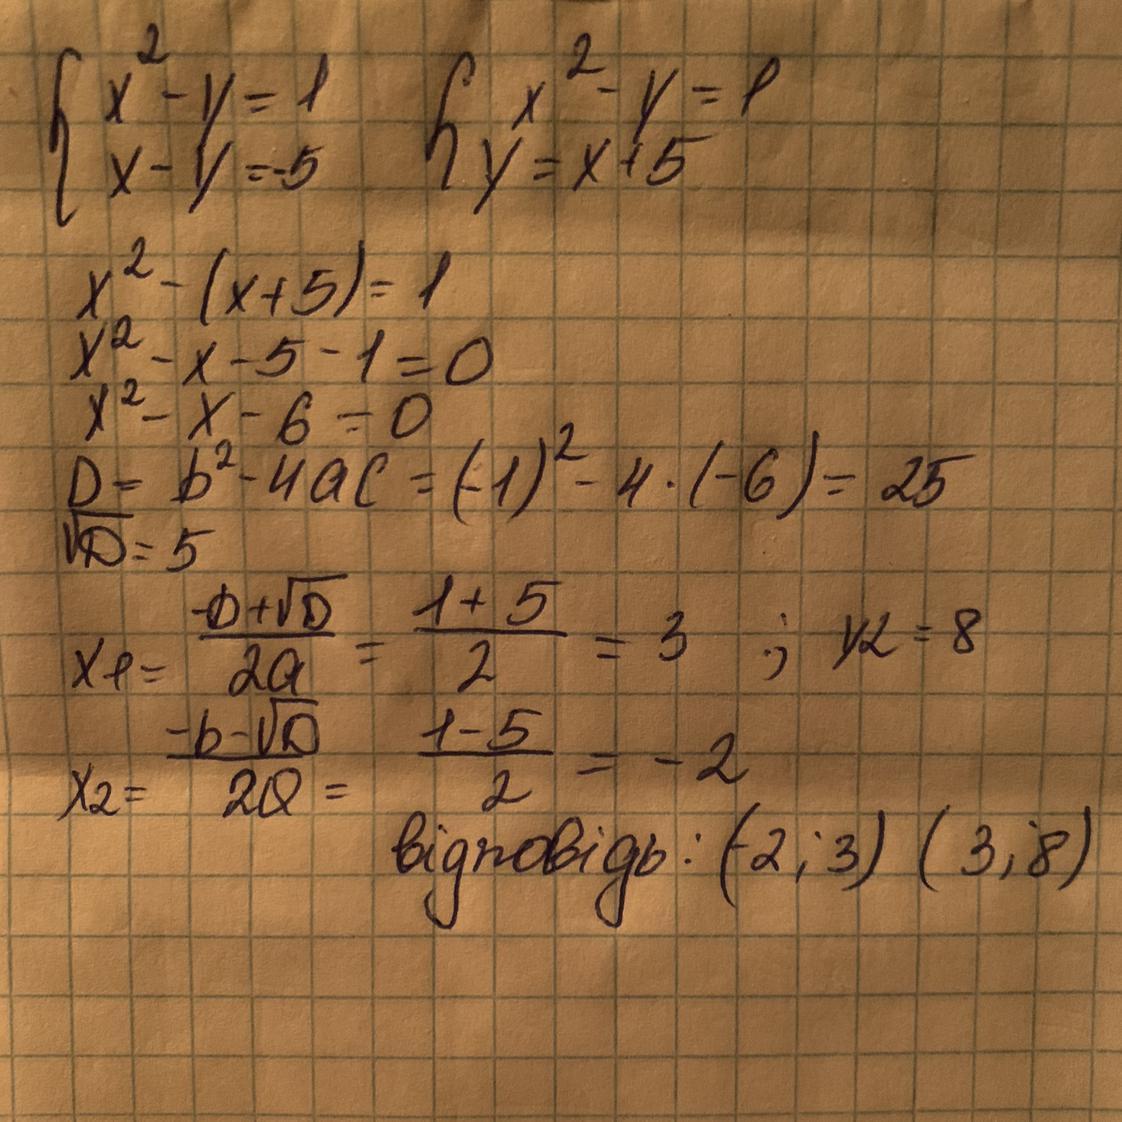 { x² - y = 1 { x² - y = 1
x - y = -5 y = x + 5
x² - (x + 5) = 1
x² - x - 5 - 1 = 0
x² - x - 6 = 0
D = b² - 4ac = (-1)² - 4 · (-6) = 25
√D = 5
x1 = (-b + √D)/2a = (1 + 5)/2 = 3 ; y2 = 8
x2 = (-b - √D)/2a = (1 - 5)/2 = -2
відповідь: (-2; 3) (3; 8)